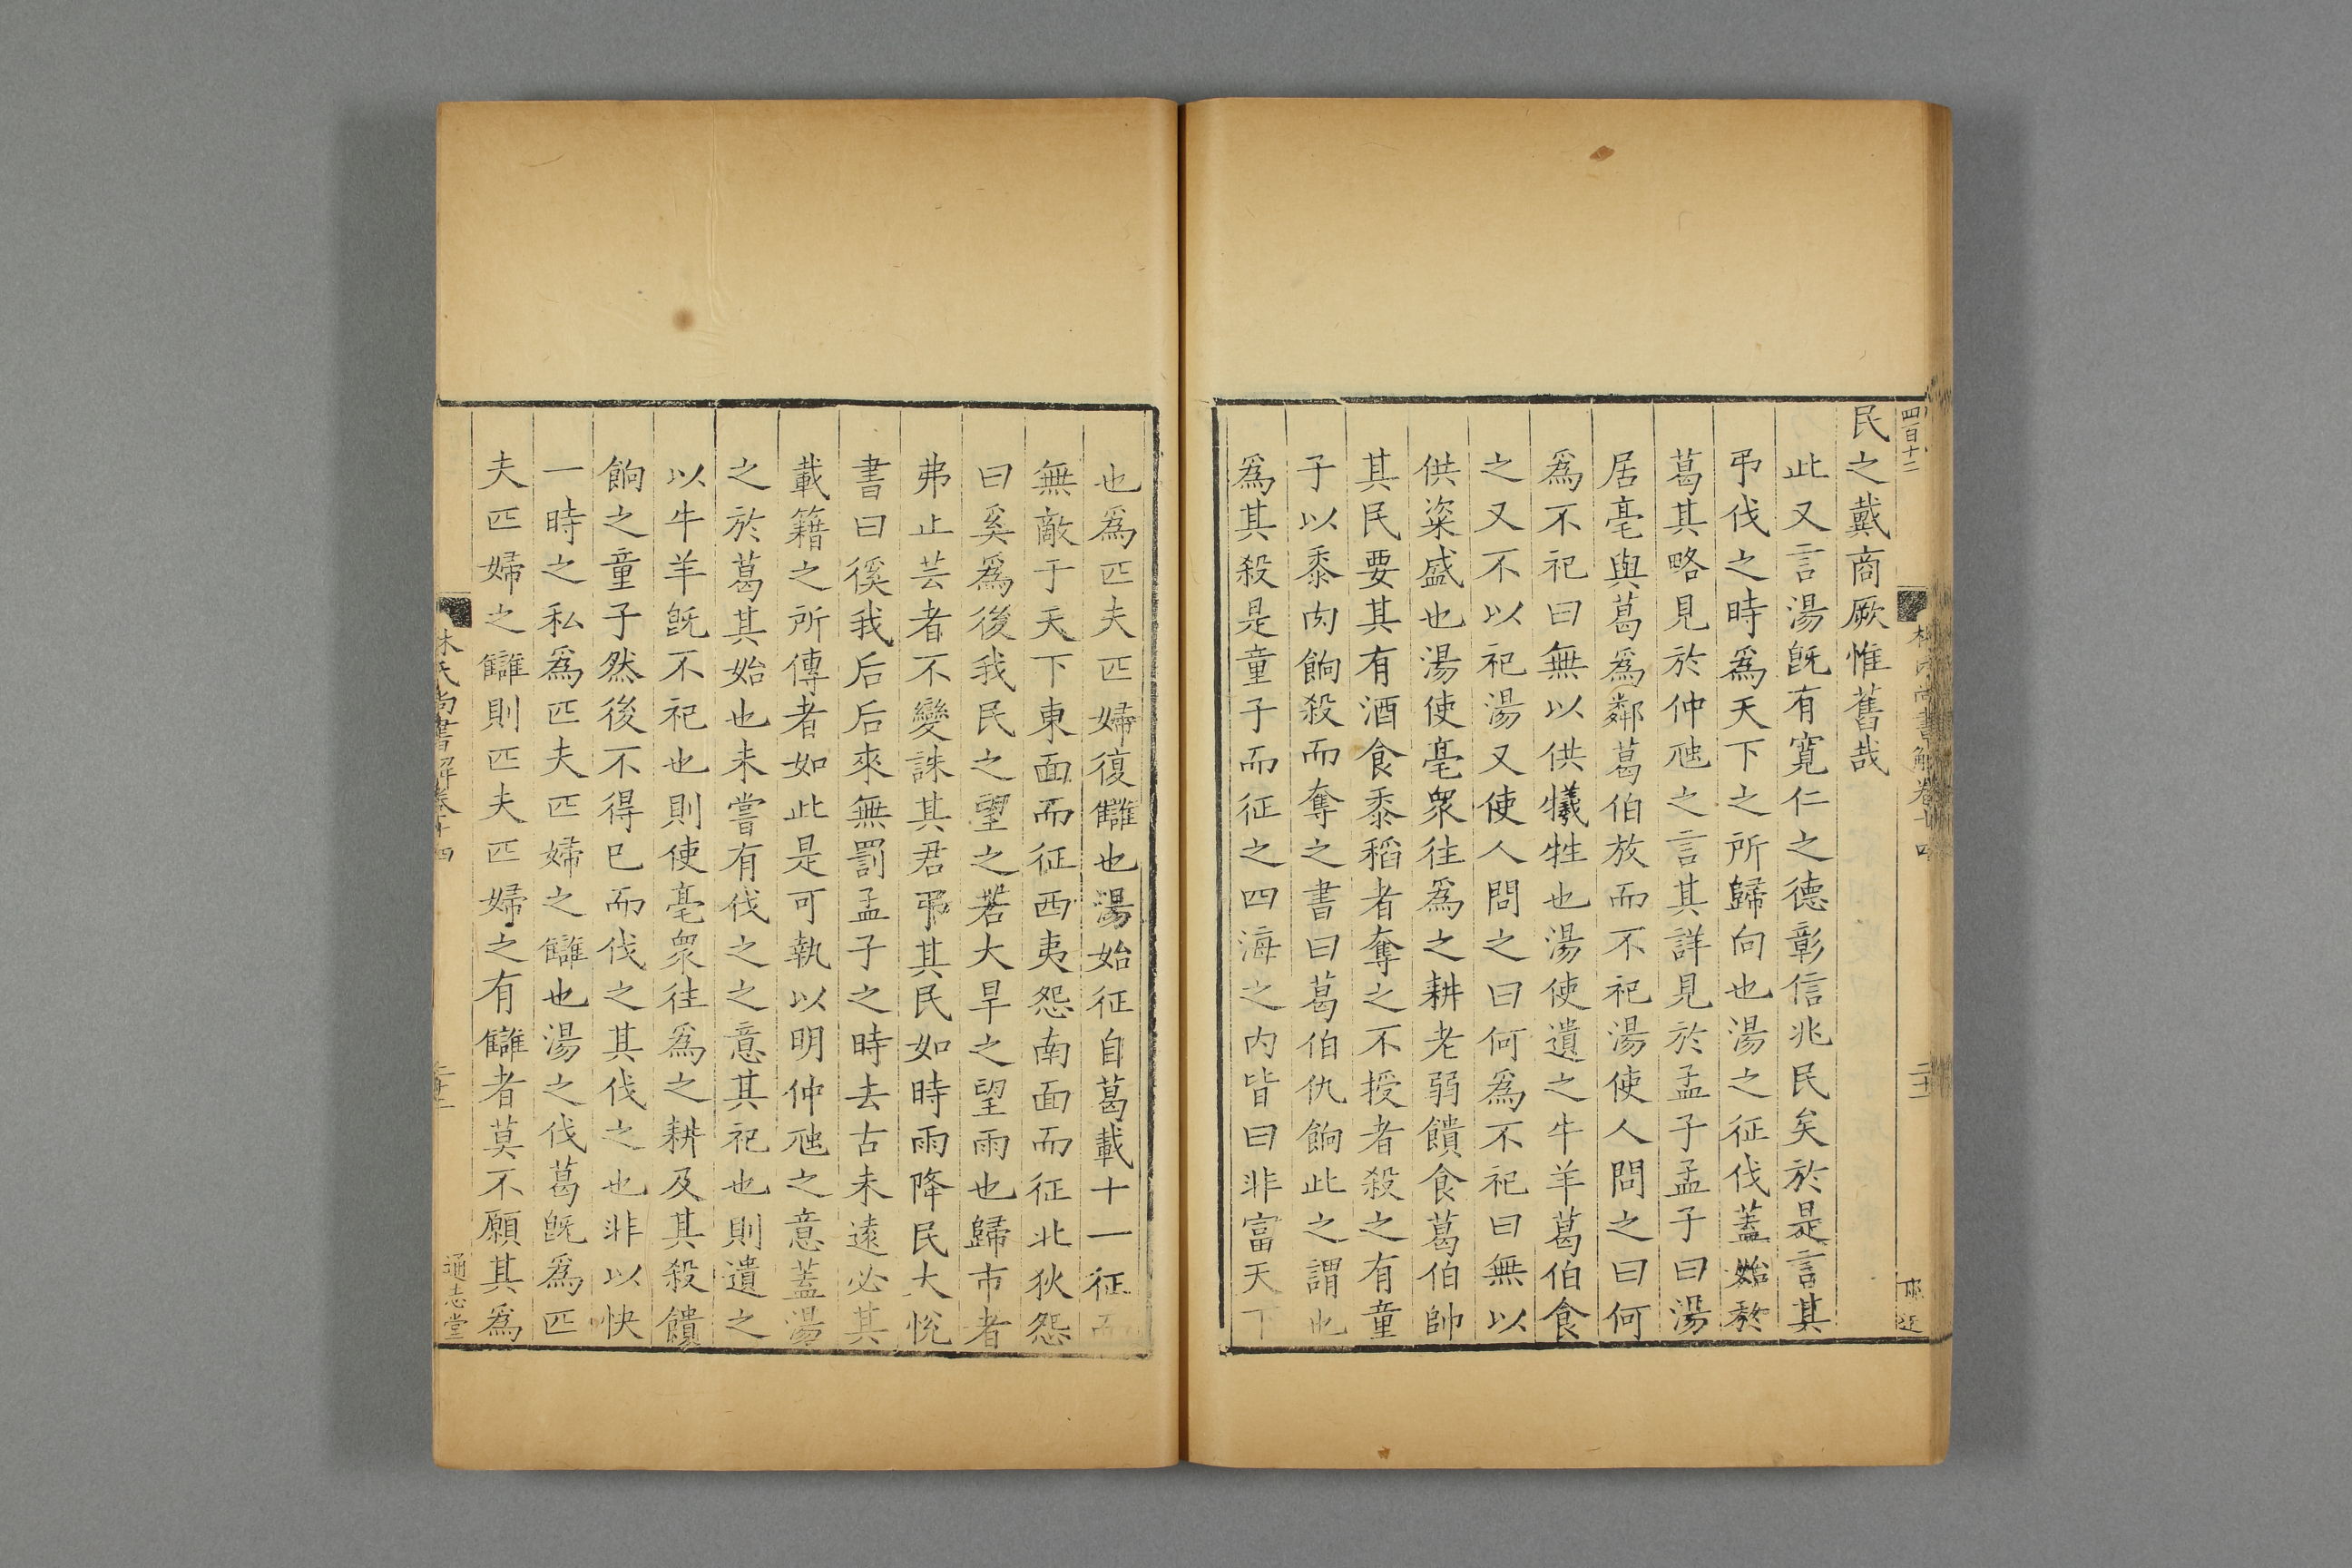 四百十二
林氏尚書解卷十四
民之戴商厥惟舊哉
此又言湯旣有寬仁之德彰信兆民矣於是言其
弔伐之時爲天下之所歸向也湯之征伐蓋始於
葛其略見於仲虺之言其詳見於孟子孟子曰湯
居亳與葛爲鄰葛伯放而不祀湯使人問之曰何
爲不祀曰無以供犧牲也湯使遺之牛羊葛伯食
之又不以祀湯又使人問之曰何爲不祀曰無以
供粢盛也湯使亳衆往爲之耕老弱饋食葛伯帥
其民要其有酒食黍稻者奪之不授者殺之有童
子以黍肉餉殺而奪之書曰葛伯仇餉此之謂也
爲其殺是童子而征之四海之內皆曰非富天下
也爲匹夫匹婦復讎也湯始征自葛載十一征而
無敵于天下東面而征西夷怨南面而征北狄怨
曰奚爲後我民之望之若大旱之望雨也歸市者
弗止芸者不變誅其君弔其民如時雨降民大悅
書曰徯我后后來無罰孟子之時去古未遠必其
載籍之所傳者如此是可執以明仲虺之意蓋湯
之於葛其始也未嘗有伐之之意其祀也則遺之
以牛羊旣不祀也則使亳衆往爲之耕及其殺饋
餉之童子然後不得已而伐之其伐之也非以快
一時之私爲匹夫匹婦之讎也湯之伐葛旣爲匹
夫匹婦之讎則匹夫匹婦之有讎者莫不願其爲
林氏尚書解卷十四
通志堂